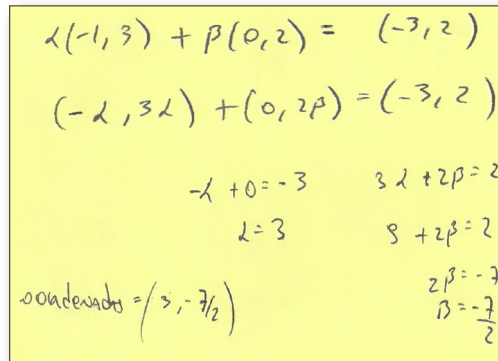 α(-1, 3) + β(0, 2) = (-3, 2)
(-α, 3α) + (0, 2β) = (-3, 2)
-α + 0 = -3
α = 3
3α + 2β = 2
9 + 2β = 2
2β = -7
β = -7/2
coordenadas = (3, -7/2)